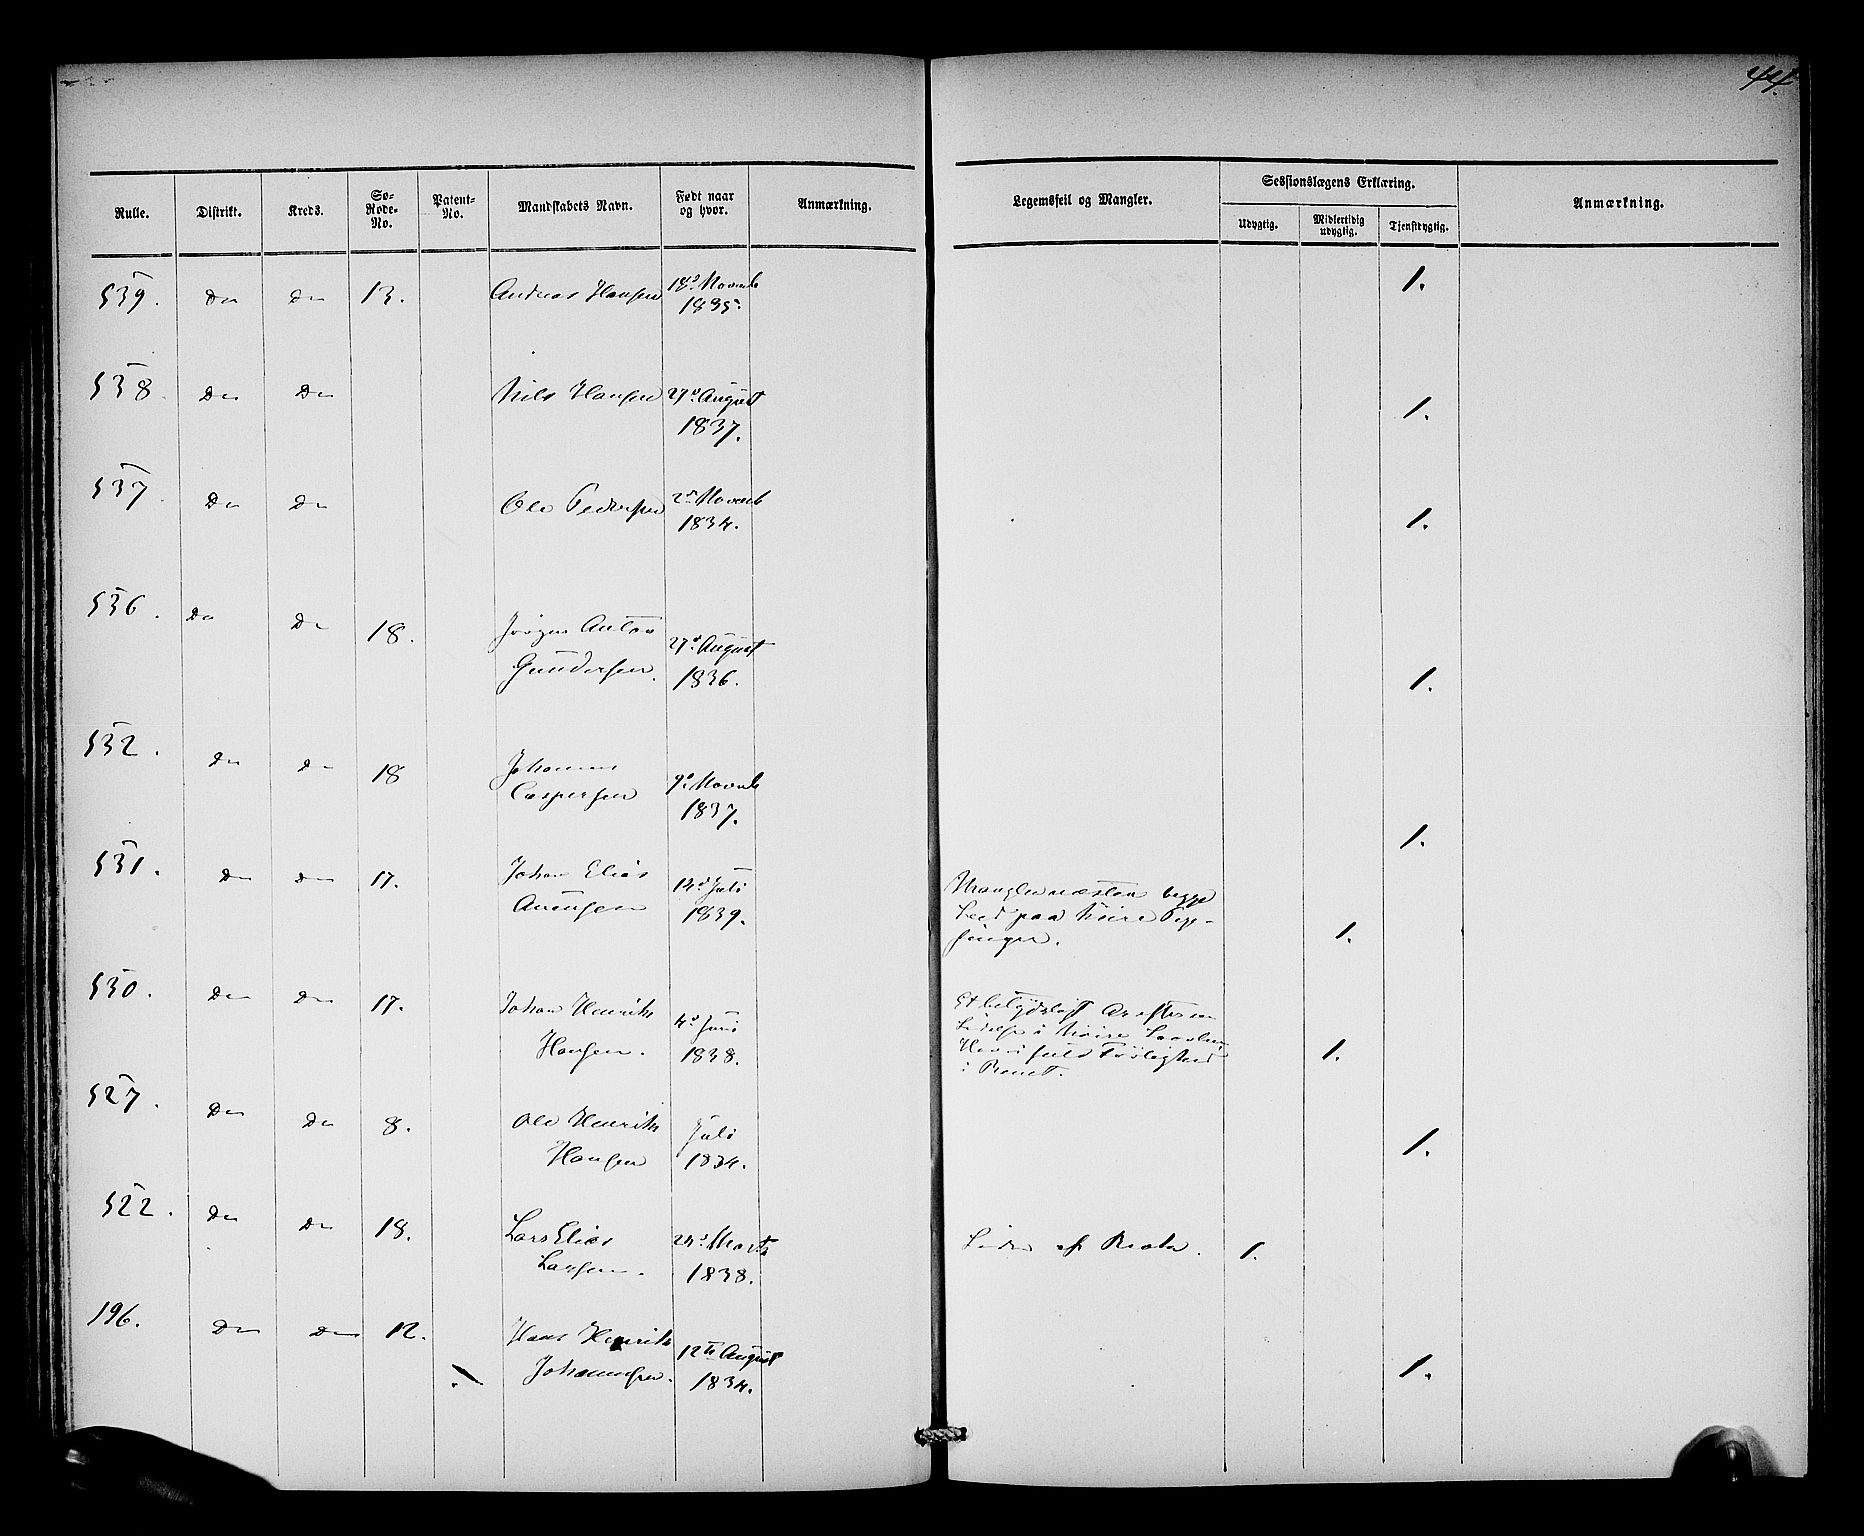 44.
Rulle. Distrikt. Kreds. Sø-Rode-No. Patent-No. Mandskabets Navn. Født naar og hvor. Anmærkning. Legemsfeil og Mangler. Sessionslægens Erklæring. Anmærkning.
Udygtig. Midlertidig udygtig. Tjenstdygtig.
539. Do Do 13. Andreas Hansen 18d Novemb 1835. 1.
538. Do Do Nils Hansen 27d August 1837. 1.
537. Do Do Ole Pedersen 2d Novemb 1834. 1.
536. Do Do 18. Jörgen Anton
Gundersen. 27d August 1836. 1.
532. Do Do 18 Johannes
Caspersen 9d Novemb 1837. 1.
531. Do Do 17. Johan Elias
14d Juli 1839. Mangler næsten begge
Led paa høire Pege-
finger. 1.
530. Do Do 17. Johan Henrik
Hansen. 4d Juni 1838. Et betydeligt Ar efter en
i høire
i fuld
i 1.
527. Do Do 8. Ole Henrik
Hansen Juli 1834. 1.
522. Do Do 18. Lars Elias
Larsen. 24d Marts 1838. Lider af Brok. 1.
196. Do Do 12. Hans Henrik
Johannesen. 12te August 1834. 1.